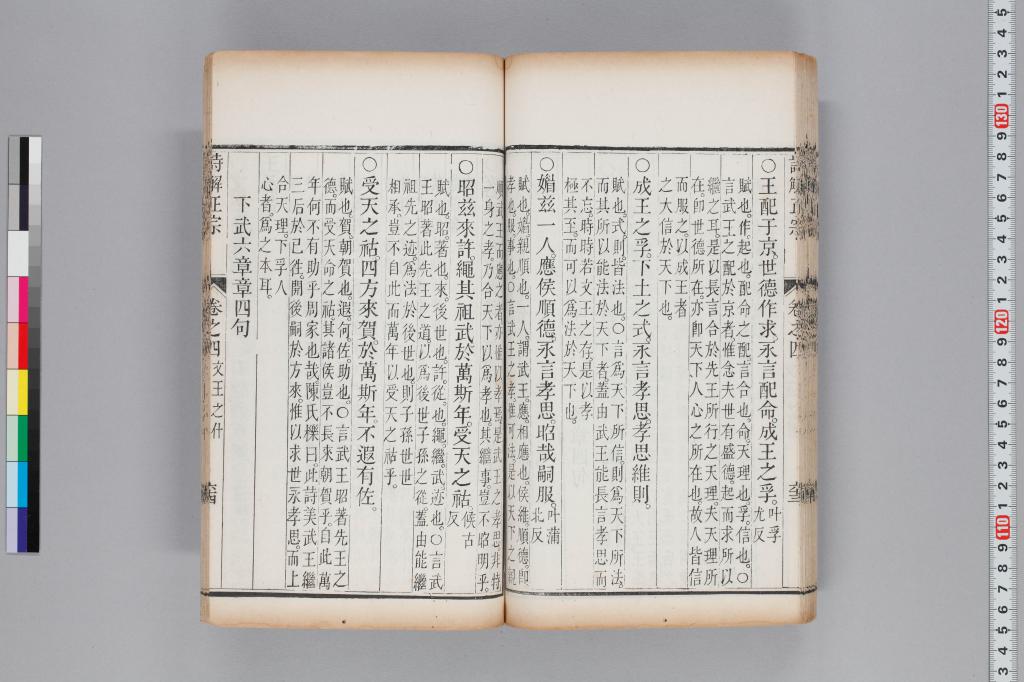 ○王配于京。世德作求。永言配命。成王之孚。叶孚尤反
賦也。作起也。配命之配言合也。命天理也。孚信也。○
言武王之配於京者惟念夫世有盛德。起而求所以
繼之耳。是以長言合於先王所行之天理。夫天理所
在。卽世德所在。亦卽天下人心之所在也。故人皆信
而服之。以成王者
之大信於天下也。
○成王之孚。下土之式。永言孝思。孝思維則。
賦也。式則。皆法也。○言爲天下所信。則爲天下所法。
而其所以能法於天下者。蓋由武王能長言孝思而
不忘。時時若文王之存。是以孝
極其至。而可以爲法於天下也。
○媚茲一人。應侯順德。永言孝思。昭哉嗣服。叶蒲北反
賦也。媚親順也。一人。謂武王。應。相應也。侯維。順德。卽
孝也。服事也。○言武王之孝。維可法。是以天下之親
順武王而應之者。亦惟以孝焉。是武王之孝思非特
一身之孝。乃合天下以爲孝也。其繼事豈不昭明乎。
○昭茲來許。繩其祖武。於萬斯年。受天之祜。候古反
賦也。昭著也。來。後世也。許。從也。繩。繼。武。迹也。○言武
王昭著此先王之道。以爲後世子孫之從。蓋由能繼
祖先之迹。爲法於後世也。則子孫世世
相承。豈不自此而萬年以受天之祜乎。
○受天之祜。四方來賀。於萬斯年。不遐有佐。
賦也。賀。朝賀也。遐。何。佐。助也。○言武王昭著先王之
德。而受天命之祜。其諸侯豈不長來朝賀乎。自此萬
年何不有助乎周家也哉。陳氏櫟曰。此詩美武王繼
三后於已往。開後嗣於方來。惟以求世永孝思。而上
合天理。下孚人
心者。爲之本耳。
下武六章章四句
詩解正宗
卷之四
文王之什